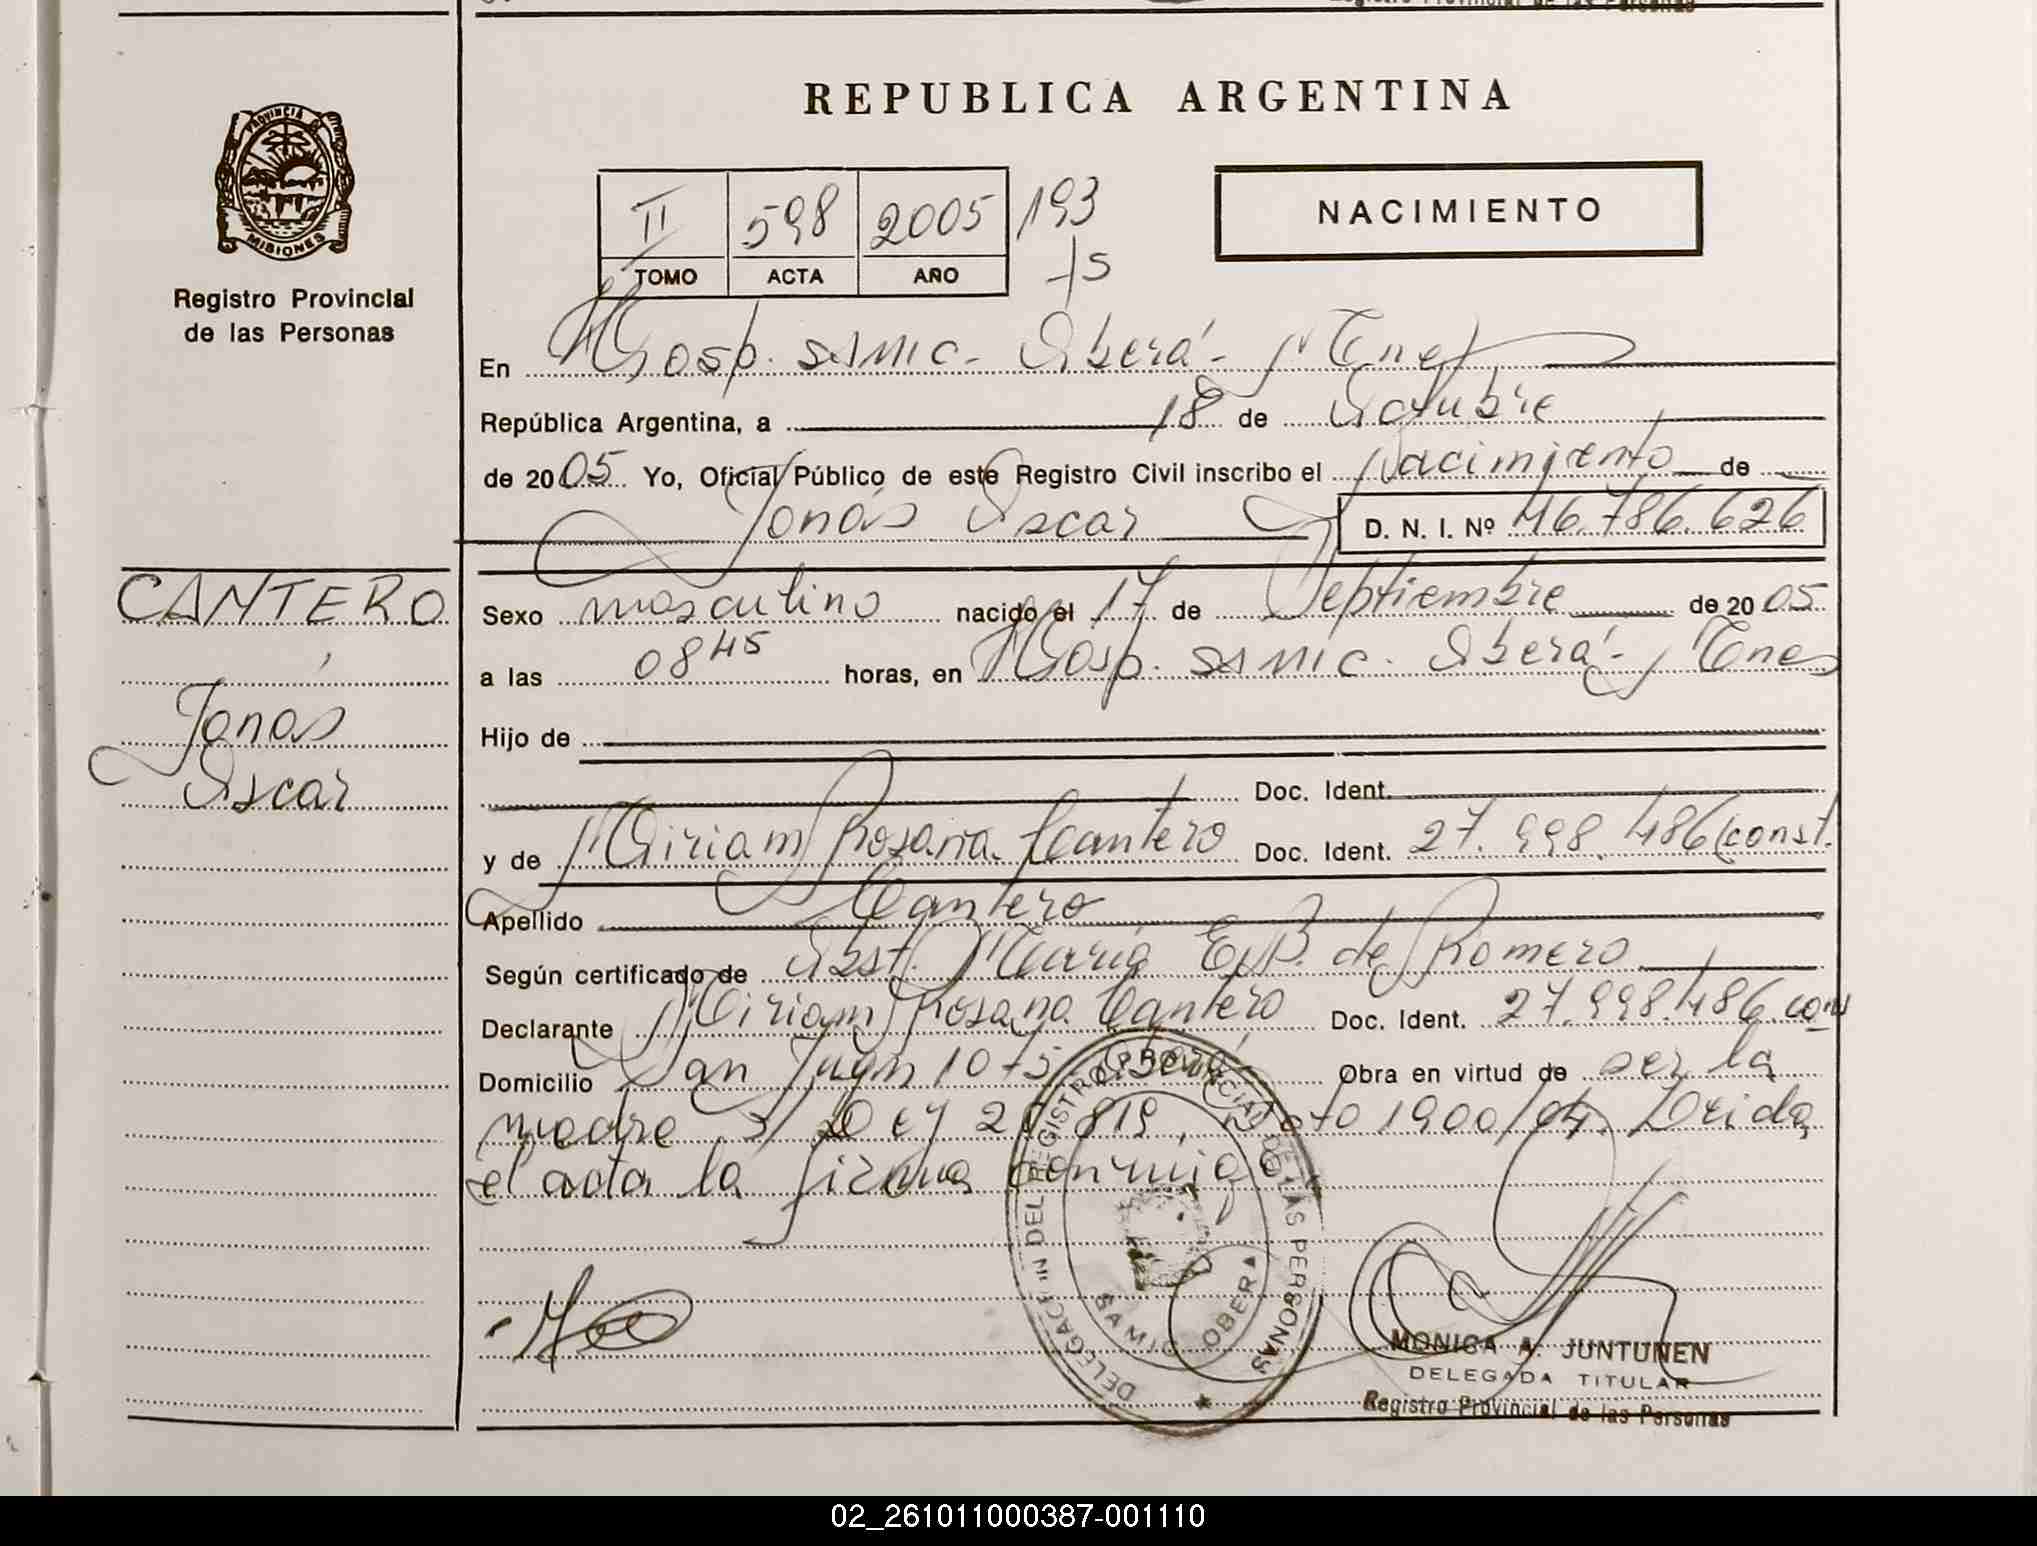 REPUBLICA ARGENTINA
PROVINCIA DE
MISIONES
Registro Provincial
de las Personas
II 598 2005 193
TOMO ACTA AÑO
NACIMIENTO
En Hosp. SAMIC- Oberá- Mnes
República Argentina, a 18 de Octubre
de 2005 Yo, Oficial Público de este Registro Civil inscribo el Nacimiento de
Jonás Oscar D. N. I. Nº 46.786.626
CANTERO
Jonás
Oscar
Sexo masculino nacido el 17 de Septiembre de 2005
a las 0845 horas, en Hosp. SAMIC. Oberá- Mnes
Hijo de
Doc. Ident.
y de Miriam Rosana Cantero Doc. Ident. 27.998.486 const.
Apellido Cantero
Según certificado de Obst. María E. P. de Romero
Declarante Miriam Rosana Cantero Doc. Ident. 27.998.486 const
Domicilio San Juan 1075 Oberá Obra en virtud de ser la
madre s/ Ley 25.819, Dcto 1900/04. Leida
el acta la firma conmigo
DELEGACION DEL REGISTRO PROVINCIAL DE LAS PERSONAS
SAMIC OBERA
MONICA A. JUNTUNEN
DELEGADA TITULAR
Registro Provincial de las Personas
02_261011000387-001110